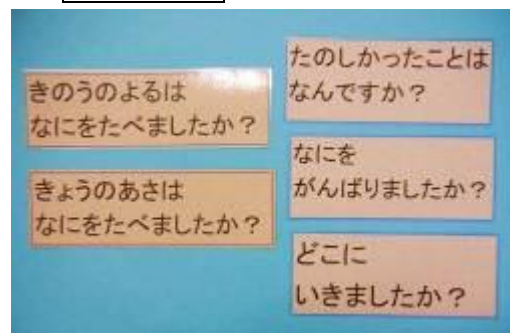 きのうのよるは
なにをたべましたか？
きょうのあさは
なにをたべましたか？
たのしかったことは
なんですか？
なにを
がんばりましたか？
どこに
いきましたか？